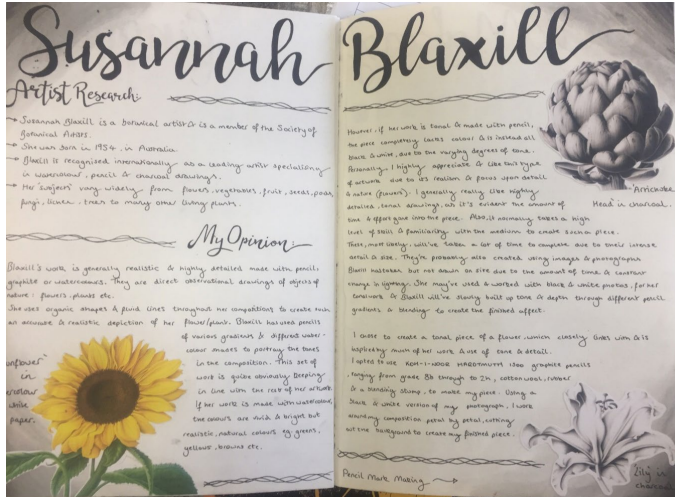 Susannah Blaxill
Artist Research:
Susannah Blaxill is a botanical artist & is a member of the Society of
Botanical Artists.
She was born in 1954, in Australia.
Blaxill is recognised internationally as a leading artist specialising
in watercolour, pencil & charcoal drawings.
Her 'subjects' vary widely from flowers, vegetables, fruit, seeds, pods,
fungi, lichen, trees to many other living plants.
My Opinion:
Blaxill's work, is generally realistic & highly detailed made with pencil,
graphite or watercolours. They are direct observational drawings of objects of
nature: flowers, plants etc.
She uses organic shapes & fluid lines throughout her compositions to create such
an accurate & realistic depiction of her flower/plant. Blaxill has used pencils
of various gradients & different water-
colour mixes to portray the tones
in the composition. This set of
work is quite obviously keeping
in line with the rest of her artwork.
If her work is made with watercolour,
the colours are vivid & bright but
realistic, natural colours eg. greens,
yellows, browns etc.
sunflower"
in
watercolour
white
paper.
However, if her work is tonal & made with pencil,
the piece completely lacks colour & is instead all
black & white, due to the varying degrees of tone.
Personally, I highly appreciate & like this type
of artwork due to its realism & focus upon detail
& nature (flowers). I generally really like highly
detailed, tonal drawings, as it's evident the amount of
time & effort gave into the piece. Also, it normally takes a high
level of skill & familiarity with the medium to create such a piece.
These, most likely, will've taken a lot of time to complete due to their intense
detail & size. They're probably also created using images & photographs
Blaxill has taken but not drawn on site due to the amount of time & constant
change in lighting. She may've used & worked with black & white photos, for her
tonal work & Blaxill will've slowly built up tone & depth through different pencil
gradients & blending to create the finished effect.
"Artichoke
Head" in charcoal.
I chose to create a tonal piece of a flower, which closely links with & is
inspired by much of her work & use of tone & detail.
I opted to use KOH-I-NOOR HARDTMUTH 1500 graphite pencils
, ranging from grade 8b through to 2h, cotton wool, rubber
& a blending stump, to make my piece. Using a
black & white version of my photograph, I work
around my composition petal by petal,
out the background to create my finished piece.
Pencil Mark Making
'Lily' in
charcoal